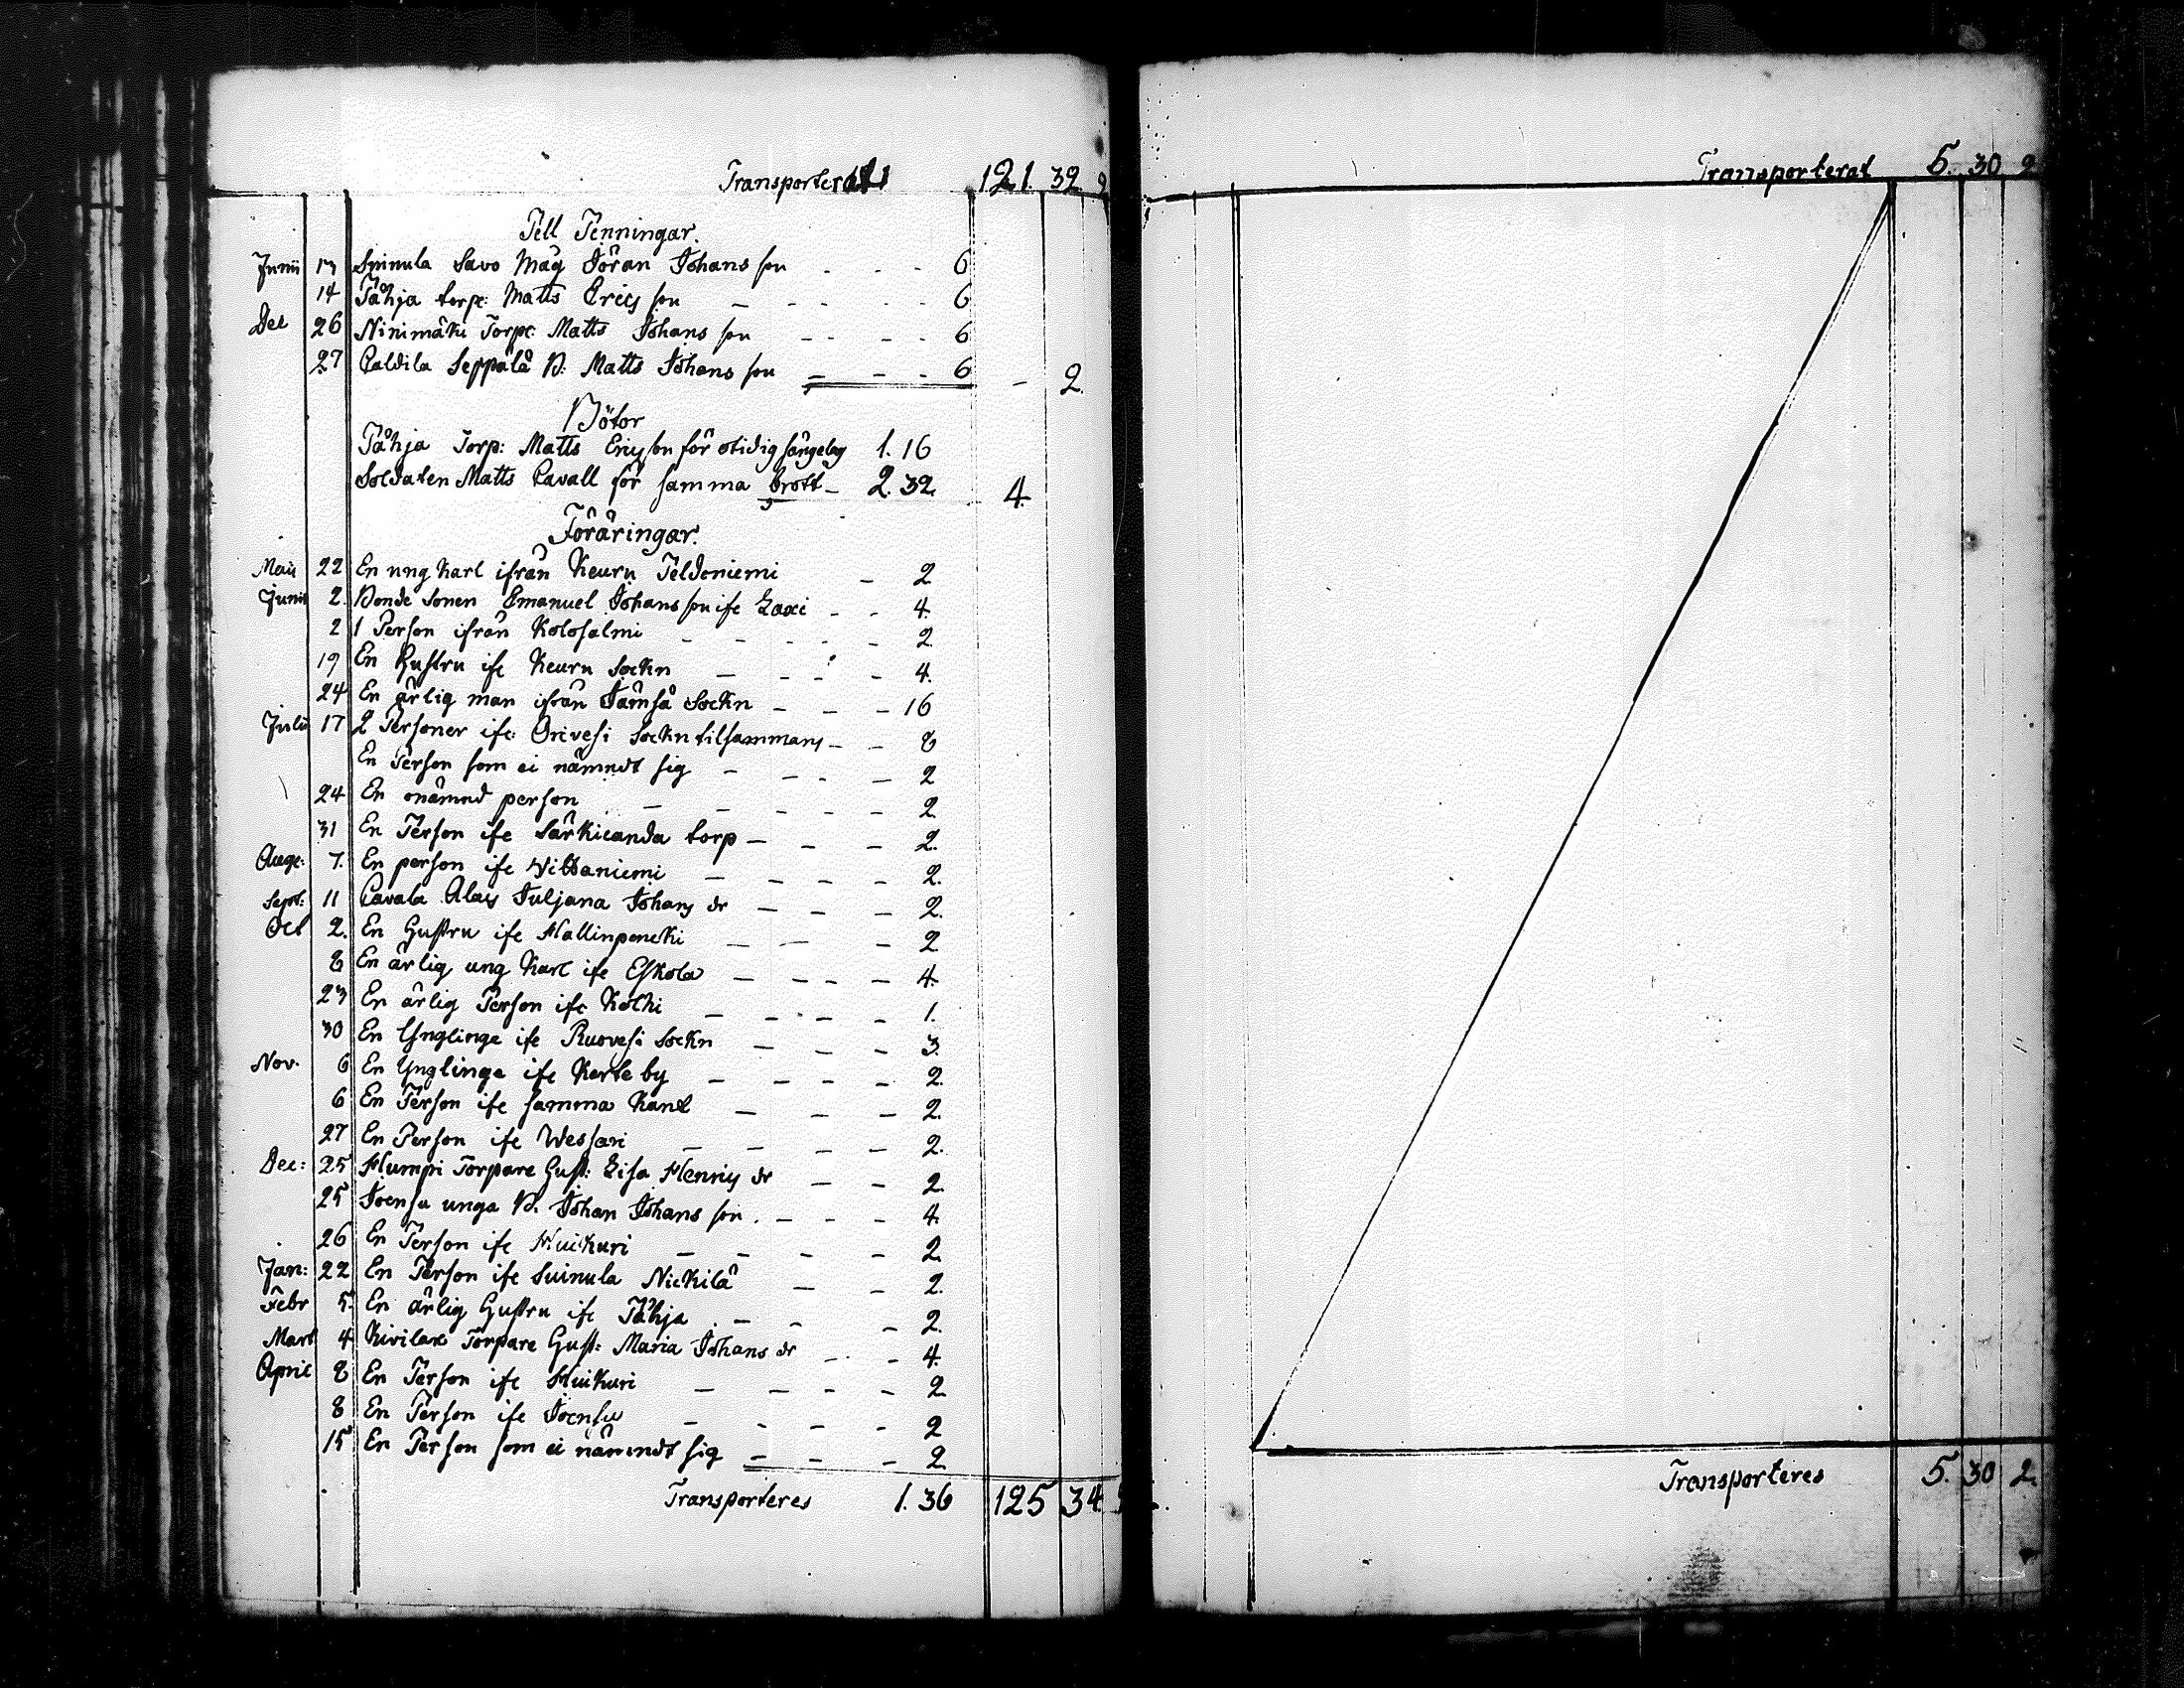 Transporterat 121. 32. 2
Tell Penningar.
Junii 13 Suinula Savo Måg Jöran Johans son - - - 6
14 Påhja torp: Matts Erics son - - - 6
Dec 26 Ninimäki Torp: Matts Johans son - - - 6
27 Caldila Seppälä B: Matts Johans son - - - 6 - 2.
Böter
Påhja Torp: Matts Ericsson för otidig sängelag 1. 16
Soldaten Matts Cavall för samma brott - 2. 32. 4.
Föräringar.
Maii 22 En ung Karl ifrån Keuru Teldoniemi - 2
Junii 2. Bonde Sonen Emanuel Johans son ifr Laxi - - 4.
2 1 Person ifrån Kolosalmi - - - 2.
19 En Hustru ifr Keuru Sockn - - - 4.
24 En ärlig man ifrån Jämså Sockn - - - 16
Julii 17 2 Personer ifr: Orivesi Sockn tilsammans - - 8
En Person som ei nämndt sig - - - 2
24 En onämnd person - - - 2.
31 En Person ifr Särkicanda torp - - - 2.
Aug: 7. En person ifr Wildaniemi - - - 2.
Sept: 11 Cavala Alais Juljana Johans dr - - - 2.
Oct 2. En Hustru ifr Hallinpencki - - - 2
8 En ärlig ung Karl ifr Eskola - - - 4.
23 En ärlig Person ifr Kolhi - - - 1.
30 En Ynglinge ifr Ruovesi Sockn - - - 3.
Nov. 6 En Ynglinge ifr Kerte by - - - 2.
6 En Person ifr samma Kant - - - 2.
27 En Person ifr Wessari - - - 2.
Dec: 25 Humpi Torpare Hust: Lisa Henrics dr - - 2.
25 Joensu unga B. Johan Johans son - - - 4.
26 En Person ifr Huikuri - - - 2.
Jan: 22 En Person ifr Suinula Nickilä - - 2.
Febr 5. En ärlig Hustru ifr Påhja - - - 2.
Mart 4 Kivilax Torpare Hust: Maria Johans dr - - 4.
April 8 En Person ifr Huikuri - - - 2
8 En Person ifr Joensu - - - 2
15 En Person som ei nämndt sig - - - 2.
Transporteres 1. 36 125 34.
Transporterat 5. 30 2
Transporteres 5. 30 2.